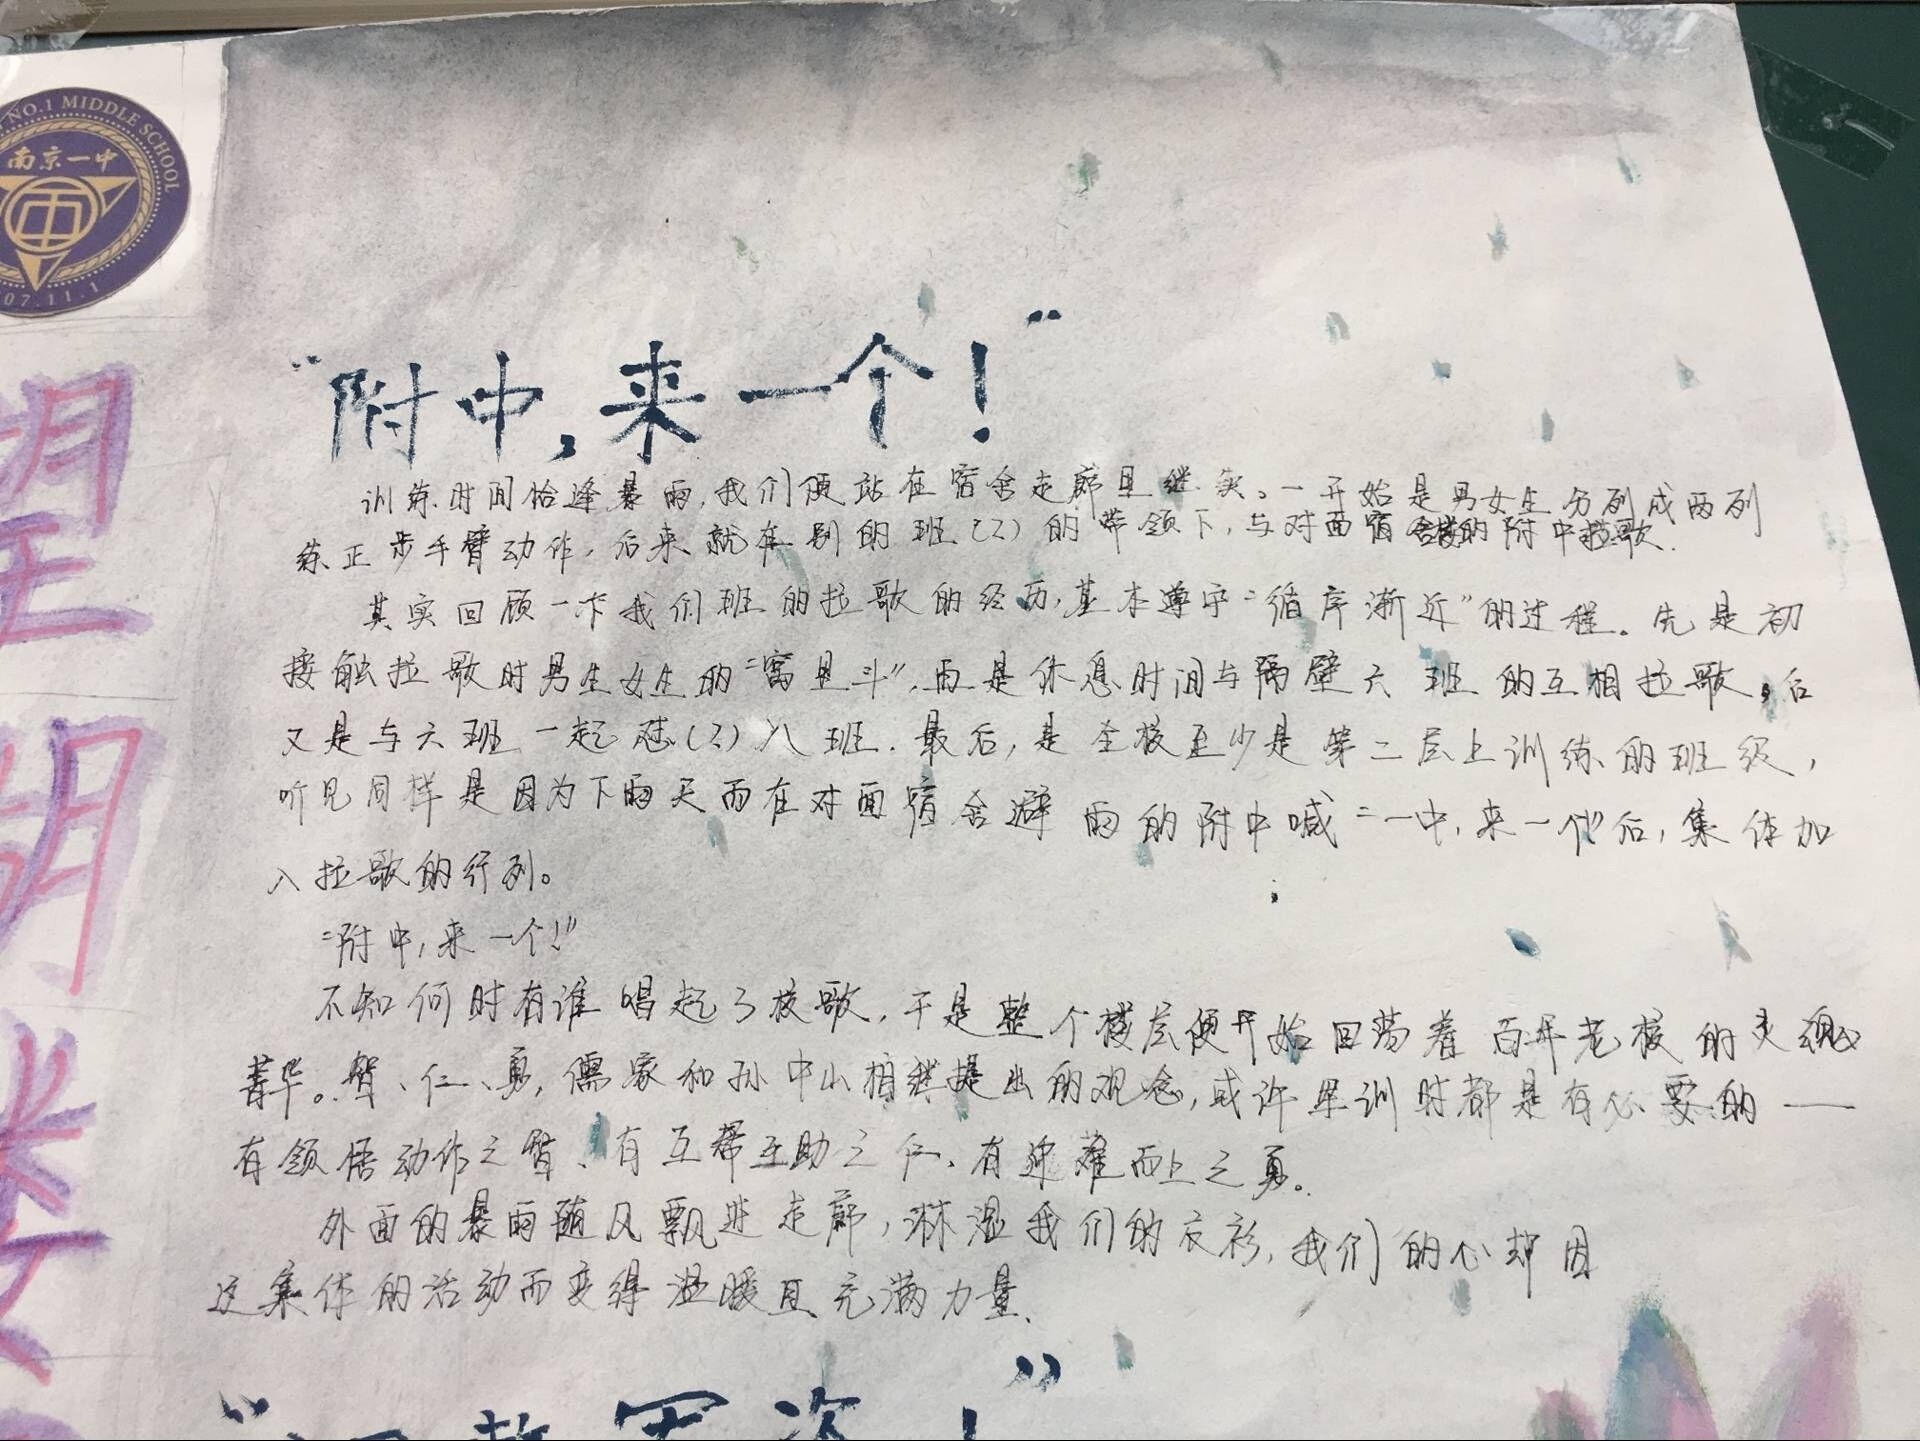 NO.1 MIDDLE SCHOOL
南京一中
07.11.1
“附中，来一个！”
训练时间恰逢暴雨，我们便站在宿舍走廊里继续。一开始是男女生分列成两列
练正步手臂动作，后来就在别的班（2）的带领下，与对面宿舍楼的附中拉歌．
其实回顾一下我们班的拉歌的经历，基本遵守“循序渐近”的过程。先是初
接触拉歌时男生女生的“窝里斗”，再是休息时间与隔壁六班的互相拉歌，后
又是与六班一起怼（2）八班．最后，是全校至少是第二层上训练的班级，
听见同样是因为下雨天而在对面宿舍避雨的附中喊“一中，来一个”后，集体加
入拉歌的行列。
“附中，来一个！”
不知何时有谁唱起了校歌，于是整个楼层便开始回荡着百年老校的灵魂
菁华。智、仁、勇，儒家和孙中山相继提出的观念，或许军训时都是有必要的——
有领悟动作之智、有互帮互助之仁、有迎难而上之勇。
外面的暴雨随风飘进走廊，淋湿我们的衣衫，我们的心却因
这集体的活动而变得温暖且充满力量．